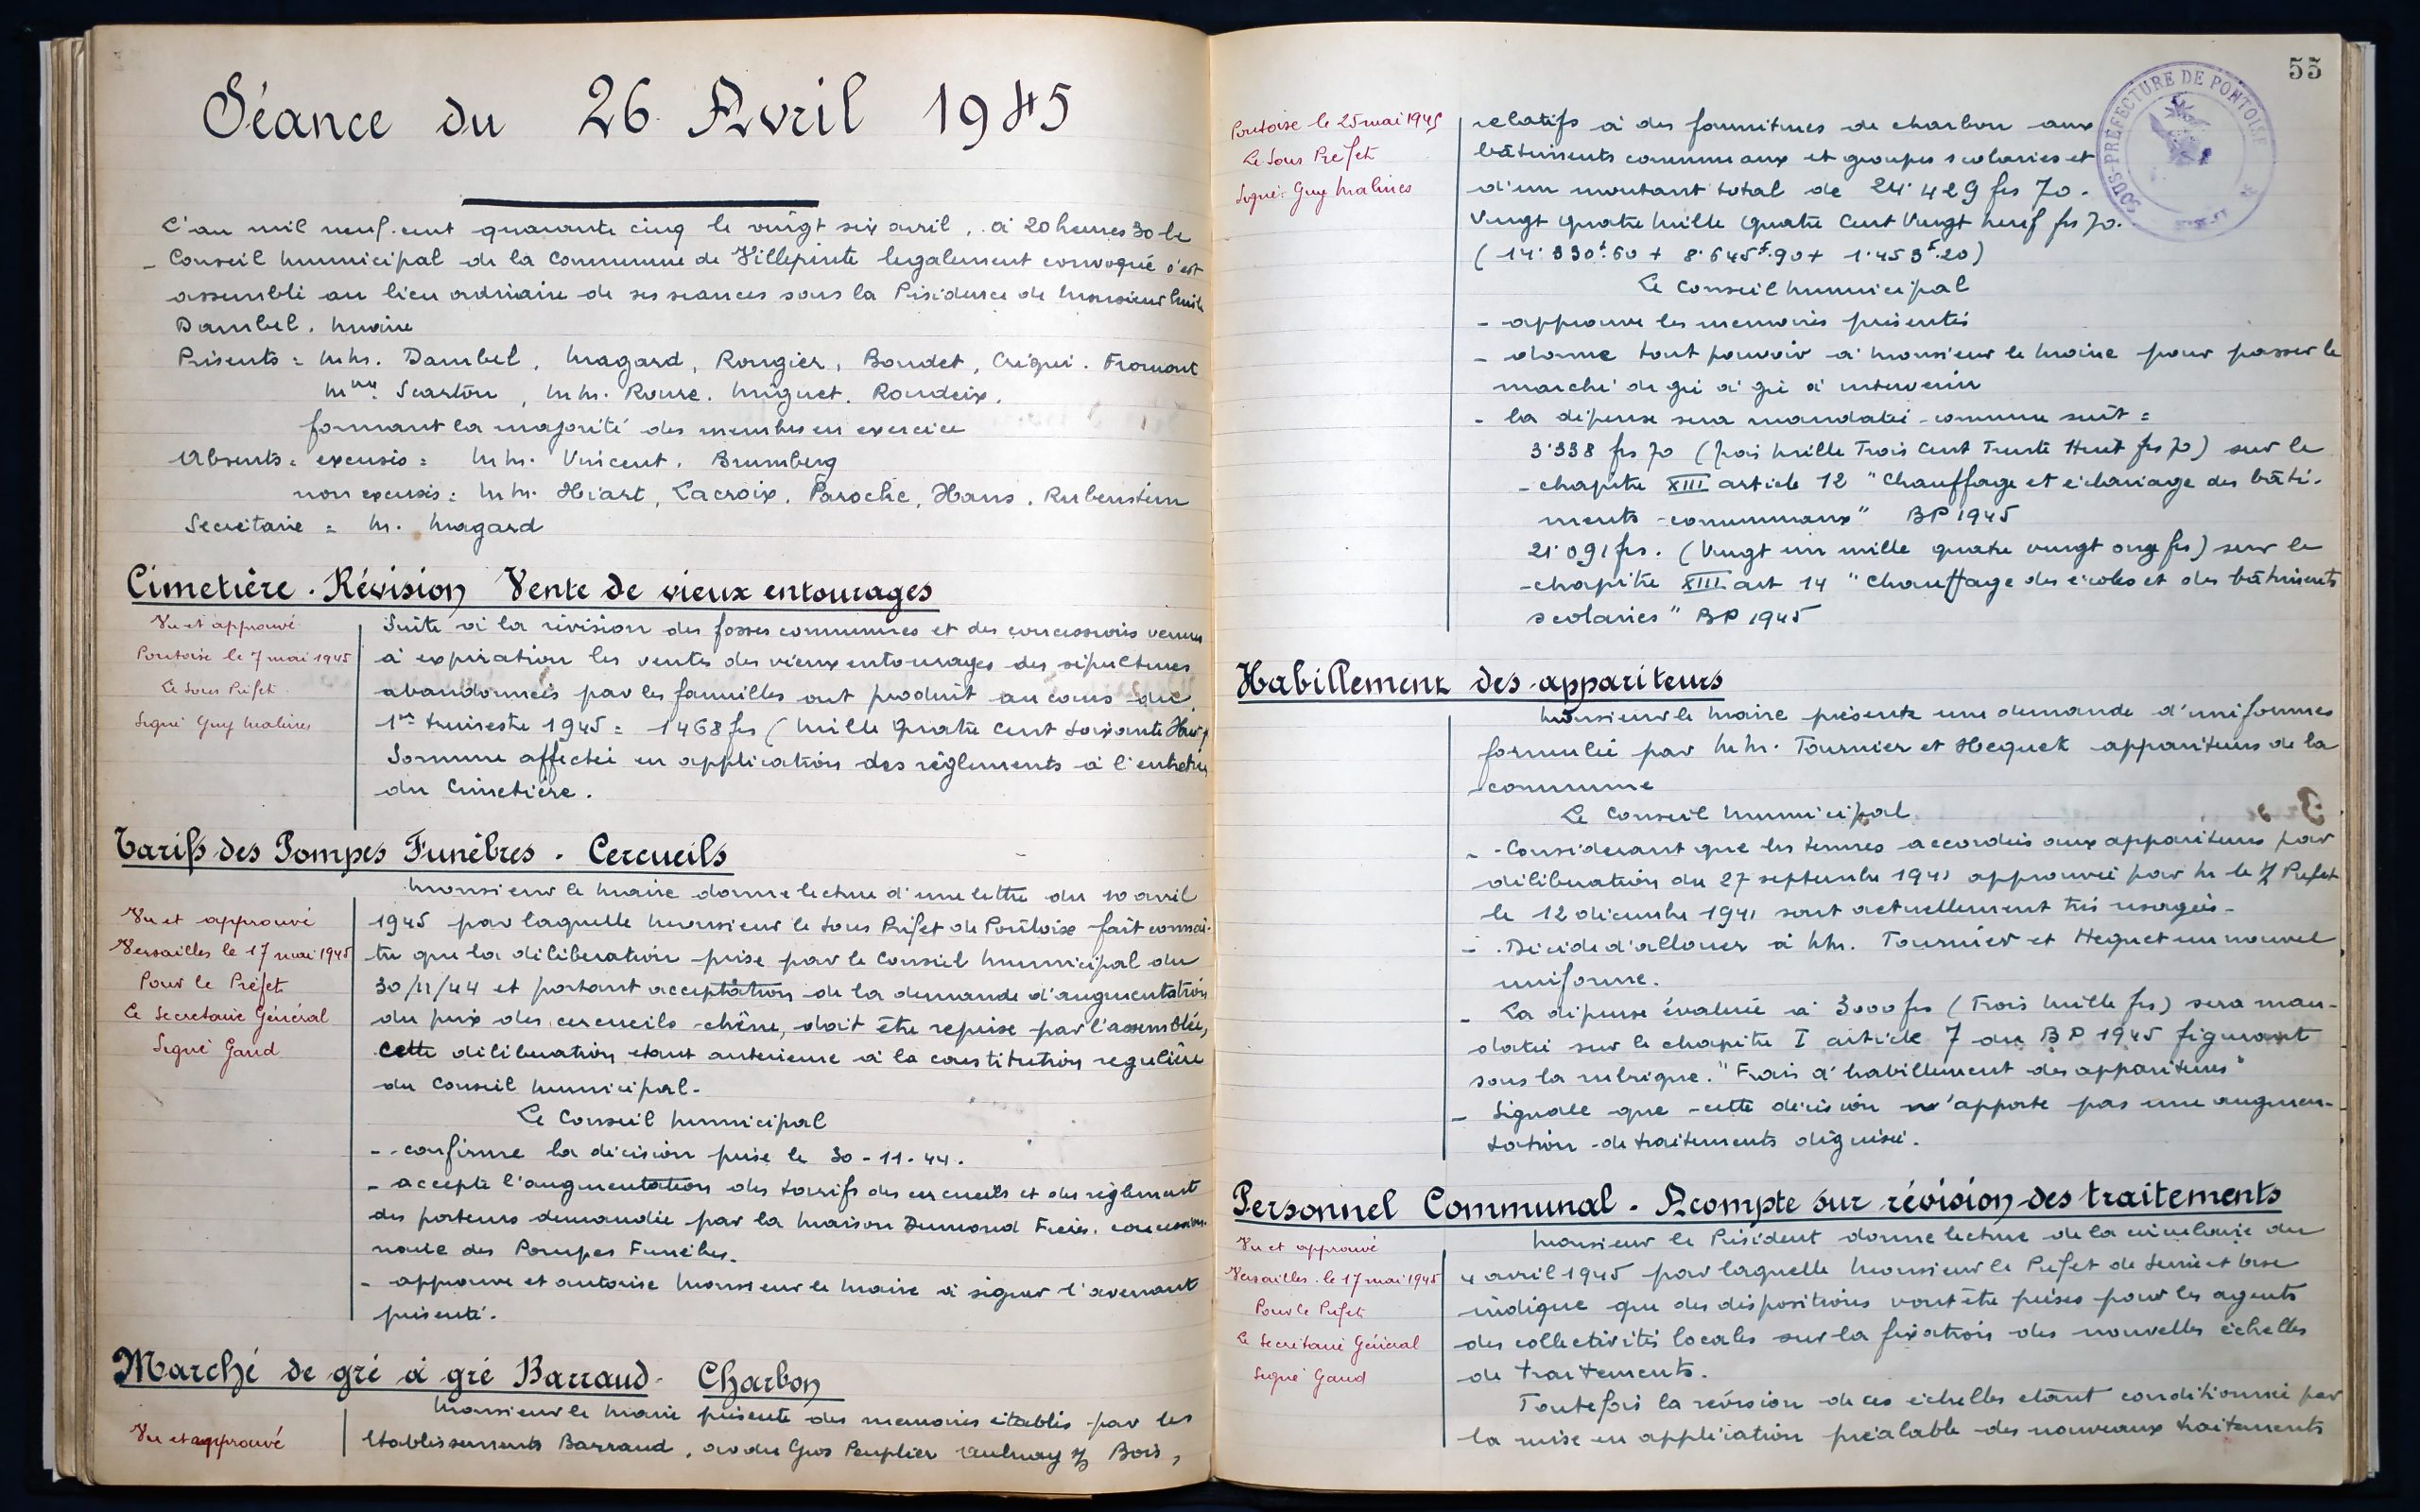 Séance du 26 Avril 1945
L'an mil neuf cent quarante cinq le vingt six avril, à 20 heures 30 le
- Conseil Municipal de la Commune de Villepinte légalement convoqué s'est
assemblé au lieu ordinaire de ses séances sous la Présidence de Monsieur Emile
Dambel, Maire
Présents = MM. Dambel, Magard, Rougier, Boudet, Créqui. Fromont
Mme Scarton, MM. Roure. Muguet. Roudeix.
formant la majorité des membres en exercice
Absents = excusés = MM. Vincent. Brumberg
non excusés = MM. Hiart, Lacroix, Paroche, Hans, Rubenstein
Secrétaire = M. Magard
Cimetière. Révision Vente de vieux entourages
Vu et approuvé
Pontoise le 7 mai 1945
Le Sous Préfet
Signé Guy Malines
Suite à la révision des fosses communes et des concessions venues
à expiration les ventes des vieux entourages des sépultures
abandonnées par les familles ont produit au cours du
1er trimestre 1945 = 1468 frs (Mille Quatre Cent Soixante Huit
Somme affectée en application des règlements à l'entretien
du Cimetière.
Tarifs des Pompes Funèbres. Cercueils
Vu et approuvé
Versailles le 17 mai 1945
Pour le Préfet
Le Secrétaire Général
Signé Gaud
Monsieur le Maire donne lecture d'une lettre du 10 avril
1945 par laquelle Monsieur le Sous Préfet de Pontoise fait connaî-
tre que la délibération prise par le Conseil Municipal du
30/11/44 et portant acceptation de la demande d'augmentation
du prix des cercueils chêne, doit être reprise par l'assemblée,
cette délibération étant antérieure à la constitution régulière
du Conseil Municipal.
Le Conseil Municipal
- confirme la décision prise le 30-11-44.
- accepte l'augmentation des tarifs des cercueils et du règlement
des porteurs demandée par la Maison Dumond Frères. concession-
naire des Pompes Funèbres.
- approuve et autorise Monsieur le Maire à signer l'avenant
présenté.
Marché de gré à gré Barraud. Charbon
Vu et approuvé
Monsieur le Maire présente des mémoires établis par les
Etablissements Barraud, av du Gros Peuplier Aulnay s/ Bois,
55
SOUS-PREFECTURE DE PONTOISE
Pontoise le 25 mai 1945
Le Sous Préfet
Signé: Guy Malines
relatifs à des fournitures de charbon aux
bâtiments communaux et groupes scolaires et
d'un montant total de 24.429 frs 70.
Vingt Quatre Mille Quatre Cent Vingt Neuf frs 70.
(14.330f.60 + 8.645f.90 + 1.453f.20)
Le Conseil Municipal
- approuve les mémoires présentés
- donne tout pouvoir à Monsieur le Maire pour passer le
marché de gré à gré à intervenir
- la dépense sera mandatée comme suit =
3.338 frs 70 (Trois Mille Trois Cent Trente Huit frs 70) sur le
- chapitre XIII article 12 "Chauffage et éclairage des bâti-
ments communaux" BP 1945
21.091 frs. (Vingt un mille quatre vingt onze frs) sur le
- chapitre XIII art 14 "Chauffage des écoles et des bâtiments
scolaires" BP 1945
Habillement des appariteurs
Monsieur le Maire présente une demande d'uniformes
formulée par MM. Tournier et Hequet appariteurs de la
commune
Le Conseil Municipal
- Considérant que les tenues accordées aux appariteurs par
délibération du 27 septembre 1941 approuvée par M. le S/ Préfet
le 12 décembre 1941 sont actuellement très usagées.
- Décide d'allouer à MM. Tournier et Hequet un nouvel
uniforme.
- La dépense évaluée à 3000 frs (Trois Mille frs) sera man-
datée sur le chapitre I article 7 du BP 1945 figurant
sous la rubrique. "Frais d'habillement des appariteurs"
- Signale que cette décision n'apporte pas une augmen-
tation de traitements déguisée.
Personnel Communal. Acompte sur révision des traitements
Vu et approuvé
Versailles. le 17 mai 1945
Pour le Préfet
Le Secrétaire Général
Signé Gaud
Monsieur le Président donne lecture de la circulaire du
4 avril 1945 par laquelle Monsieur le Préfet de Seine et Oise
indique que des dispositions vont être prises pour les agents
des collectivités locales sur la fixation des nouvelles échelles
de traitements.
Toutefois la révision de ces échelles étant conditionnée par
la mise en application préalable des nouveaux traitements